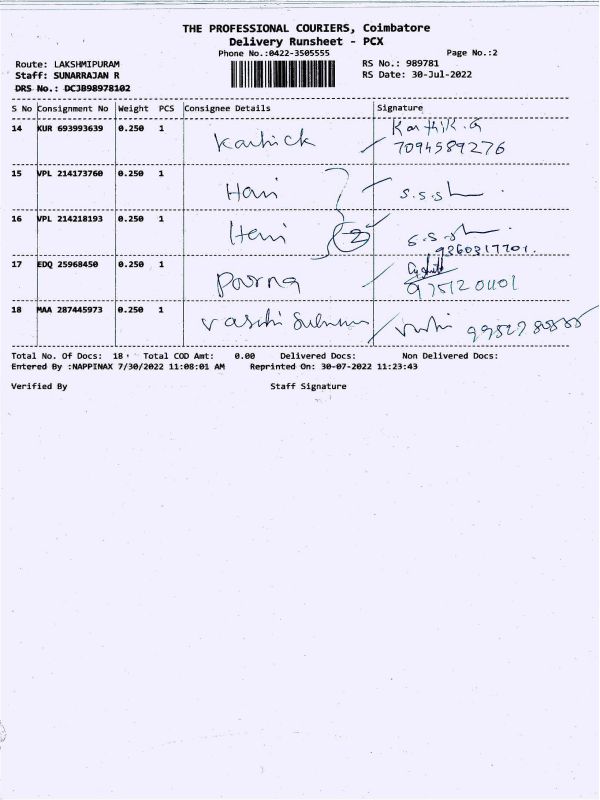 THE PROFESSIONAL COURIERS, Coimbatore
Delivery Runsheet - PCX
Phone No.:0422-3505555
Page No.:2
Route: LAKSHMIPURAM
RS No.: 989781
Staff: SUNARRAJAN R
RS Date: 30-Jul-2022
DRS No.: DCJB98978102
S No Consignment No Weight PCS Consignee Details Signature
14 KUR 693993639 0.250 1 Karhick Karthik.G
7094589276
15 VPL 214173760 0.250 1 Hari S.S.
16 VPL 214218193 0.250 1 Hari 2 S.S.
9360317701.
17 EDQ 25968450 0.250 1 Poorna
9751201101
18 MAA 287445973 0.250 1
Total No. Of Docs: 18 Total COD Amt: 0.00 Delivered Docs: Non Delivered Docs:
Entered By :NAPPINAX 7/30/2022 11:08:01 AM Reprinted On: 30-07-2022 11:23:43
Verified By Staff Signature